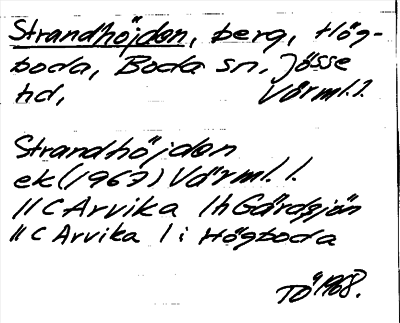 Strandhöjden, berg, Hög-
boda, Boda sn, Jösse
hd, Värml. l.
Strandhöjden
ek (1967) Värml. l.
11 C Arvika 1 h Gårdsjön
11 C Arvika 1 i Högboda
TÖ 1968.